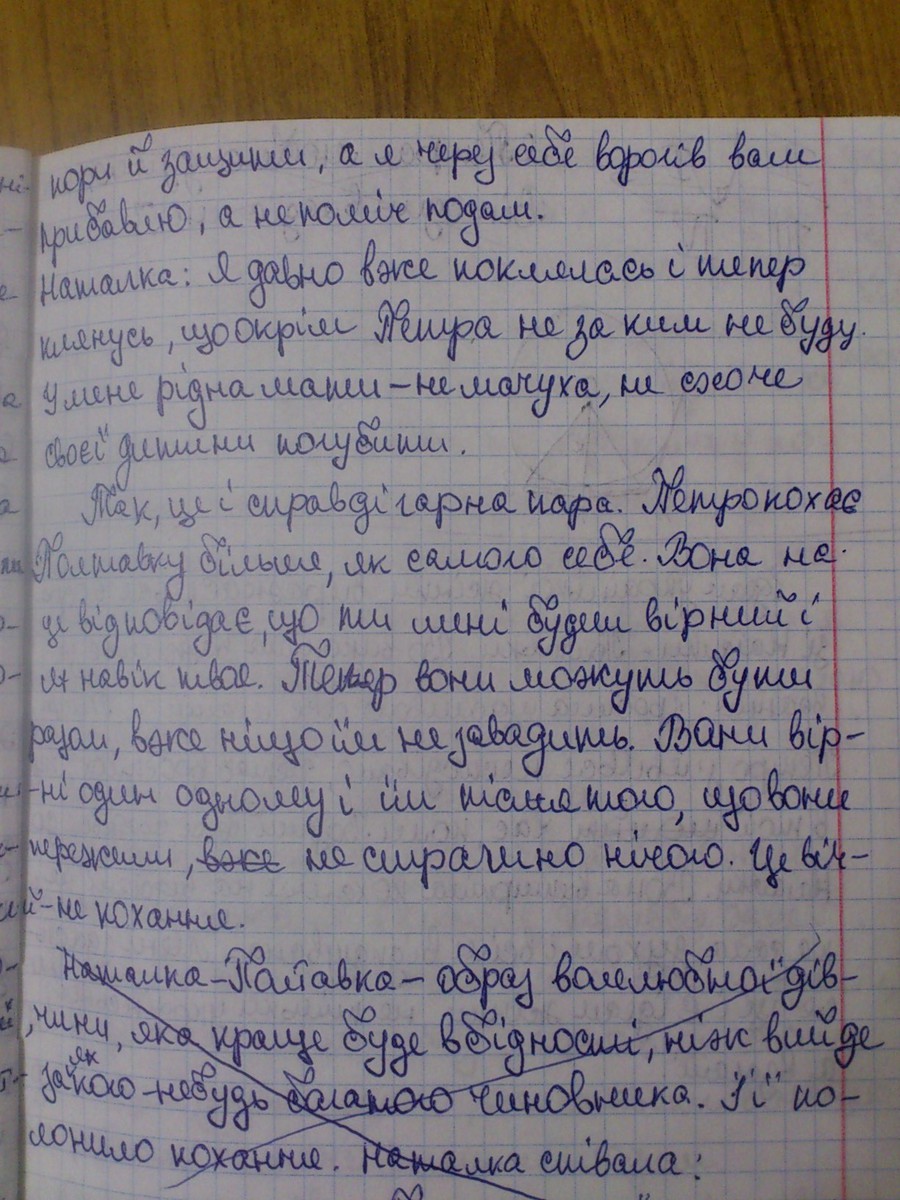 пори й защити, а я через себе ворогів вам
прибавлю, а не поміч подам.
Наталка: Я давно вже поклялась і тепер
клянусь, що окрім Петра не за ким не буду.
У мене рідна мати – не мачуха, не схоче
своєї дитини погубити.
Так, це і справді гарна пара. Петро кохає
Полтавку більше, як самого себе. Вона на
це відповідає, що ти мені будеш вірний і
я навік твоя. Тепер вони можуть бути
разом, вже ніщо їм не завадить. Вони вір-
-ні один одному і їм після того, що вони
пережили, вже не страшно нічого. Це віч-
-не кохання.
Наталка-Полтавка – образ волелюбної дів-
чини, яка краще буде в бідності, ніж вийде
за як кого-небудь багатого чиновника. Її по-
лонило кохання. Наталка співала: